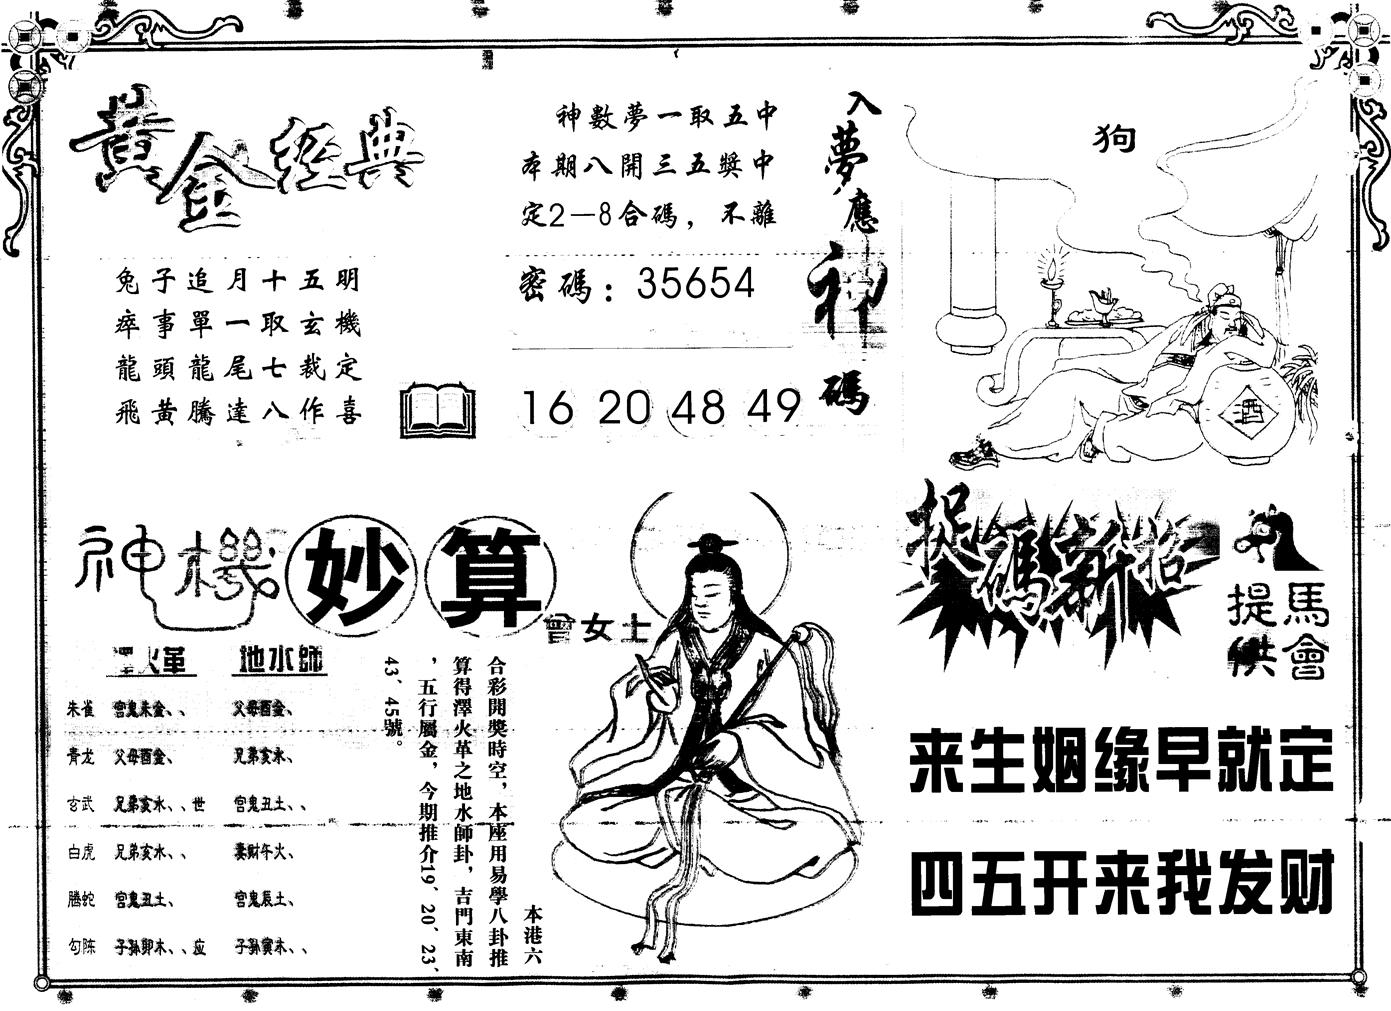 黃金經典
明五十月追子兔
機玄取一單事瘁
定裁七尾龍頭龍
喜作八達騰黃飛
中五取一夢數神
中獎五三開八期本
離不，碼合8—2定
密碼：35654
16 20 48 49
入夢應神碼
狗
酒
神機妙算
曾女士
澤火革 地水師
朱雀 官鬼未金、、 父母酉金、
青龙 父母酉金、 兄弟亥水、
玄武 兄弟亥水、、世 官鬼丑土、、
白虎 兄弟亥水、、 妻财午火、
騰蛇 官鬼丑土、 官鬼辰土、
勾陈 子孙卯木、、应 子孙寅木、、
本港六
合彩開獎時空，本座用易學八卦推
算得澤火革之地水師卦，吉門東南
，五行屬金，今期推介19、20、23、
43、45號。
捉碼新招
馬會提供
来生姻缘早就定
四五开来我发财